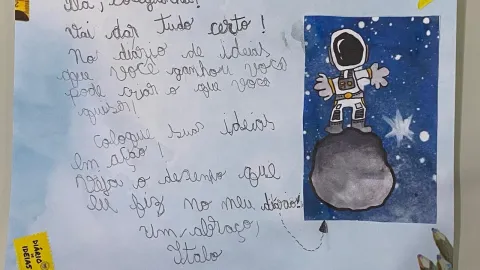 Olá, coleguinha!
Vai dar tudo certo!
No diário de ideias
que você ganhou você
pode criar o que você
quiser!
Coloque suas ideias
em ação!
Veja o desenho que
eu fiz no meu diário!
um abraço,
Italo
DIÁRIO
DE
IDEIAS